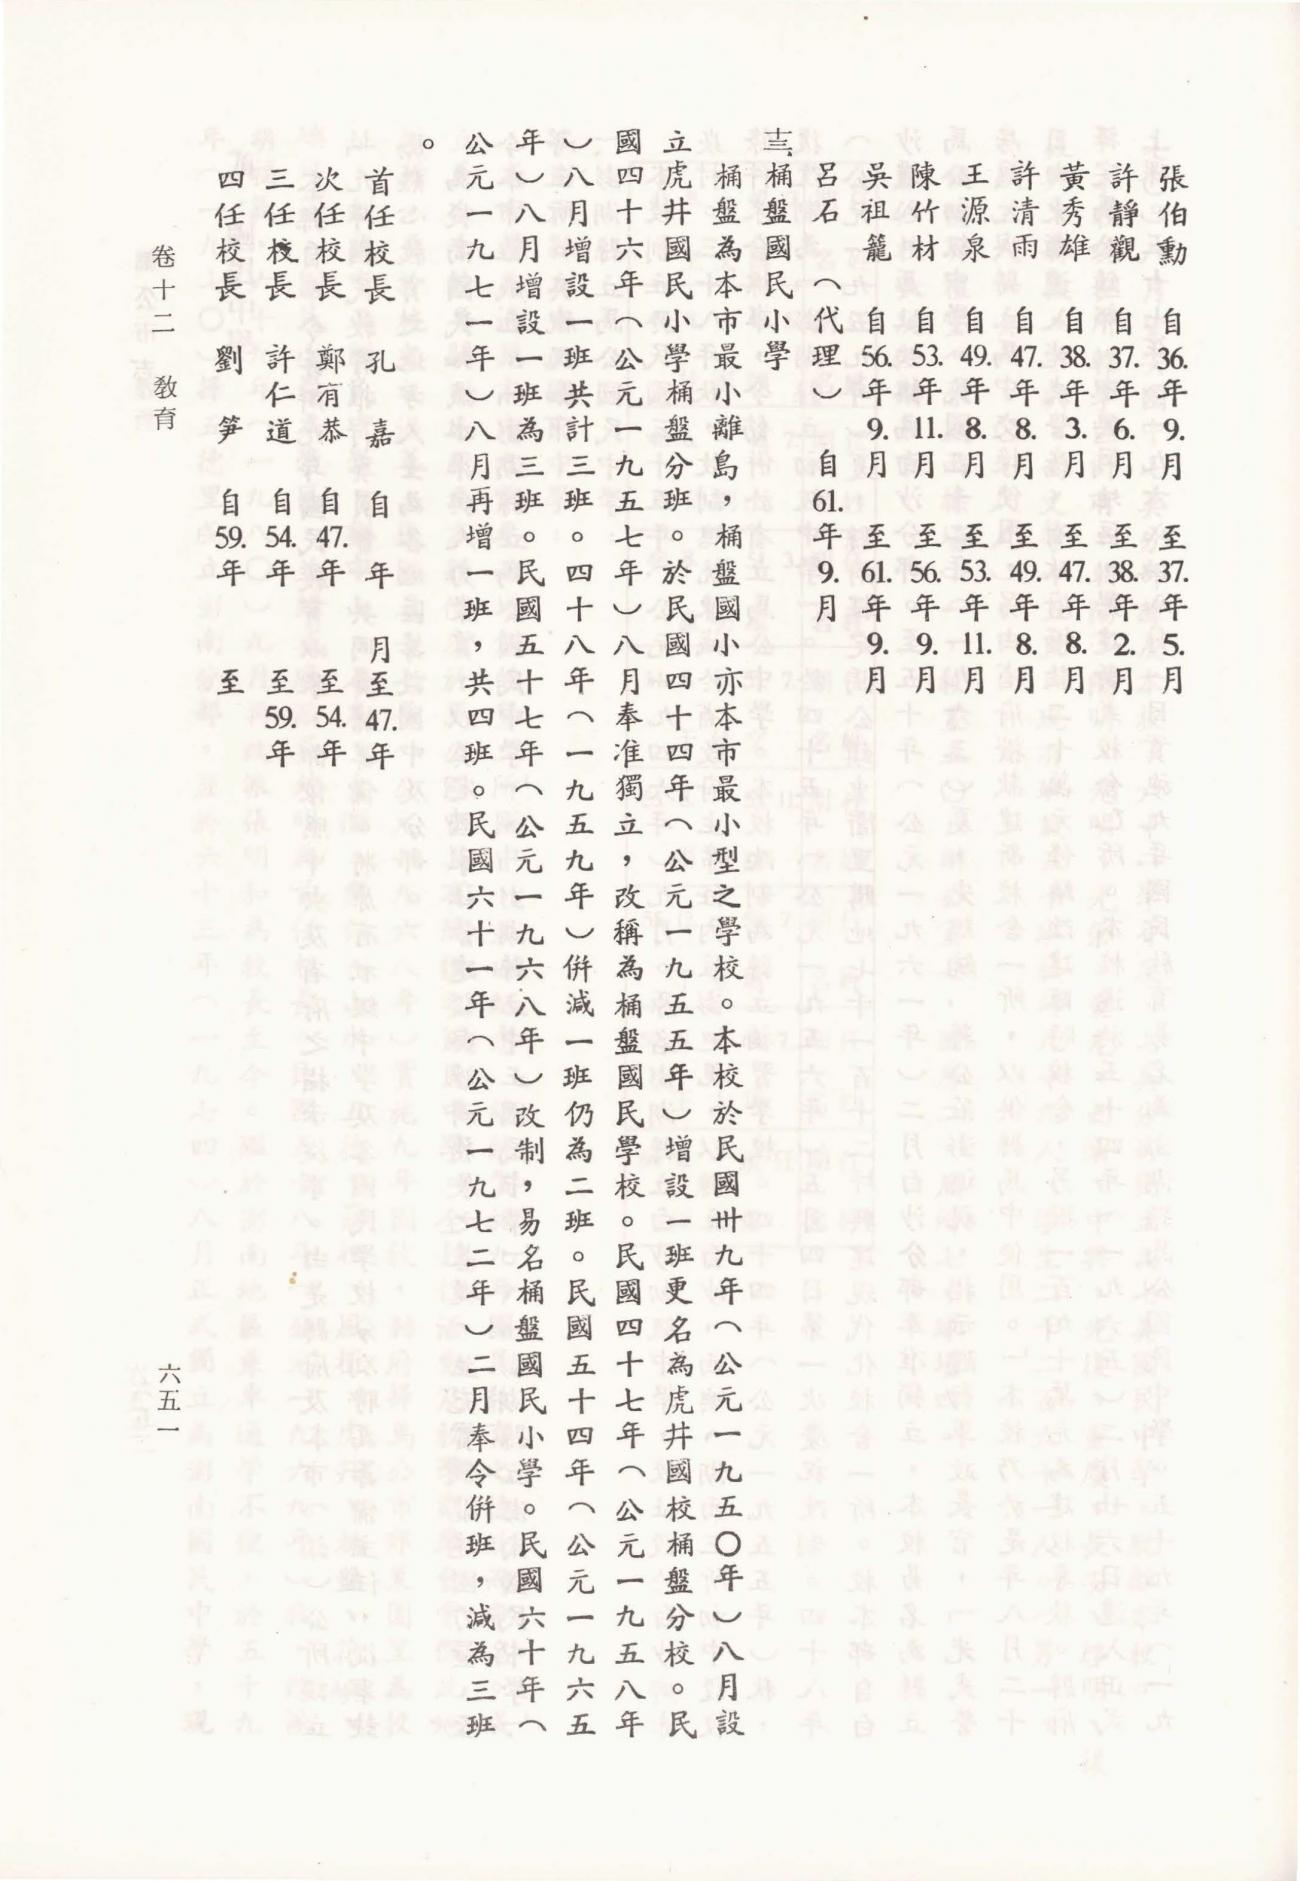 張伯勳　自36.年9.月　至37.年5.月
許靜觀　自37.年6.月　至38.年2.月
黃秀雄　自38.年3.月　至47.年8.月
許清雨　自47.年8.月　至49.年8.月
王源泉　自49.年8.月　至53.年11.月
陳竹材　自53.年11.月　至56.年9.月
吳祖籠　自56.年9.月　至61.年9.月
呂石（代理）　自61.年9.月
十三、桶盤國民小學
桶盤為本市最小離島，桶盤國小亦本市最小型之學校。本校於民國卅九年（公元一九五〇年）八月設
立虎井國民小學桶盤分班。於民國四十四年（公元一九五五年）增設一班更名為虎井國校桶盤分校。民
國四十六年（公元一九五七年）八月奉准獨立，改稱為桶盤國民學校。民國四十七年（公元一九五八年
）八月增設一班共計三班。四十八年（一九五九年）併減一班仍為二班。民國五十四年（公元一九六五
年）八月增設一班為三班。民國五十七年（公元一九六八年）改制，易名桶盤國民小學。民國六十年（
公元一九七一年）八月再增一班，共四班。民國六十一年（公元一九七二年）二月奉令併班，減為三班
。
首任校長　孔　嘉　自　年　月至47.年
次任校長　鄭有恭　自47.年　至54.年
三任校長　許仁道　自54.年　至59.年
四任校長　劉　笋　自59.年　至
卷十二　教育
六五一